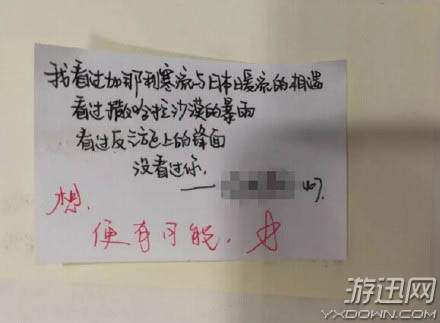 我看过加那利寒流与日本暖流的相遇
看过撒哈拉沙漠的暴雨
看过反气旋上的锋面
没看过你.
——
想.
便有可能.
游迅网
YXDOWN.COM